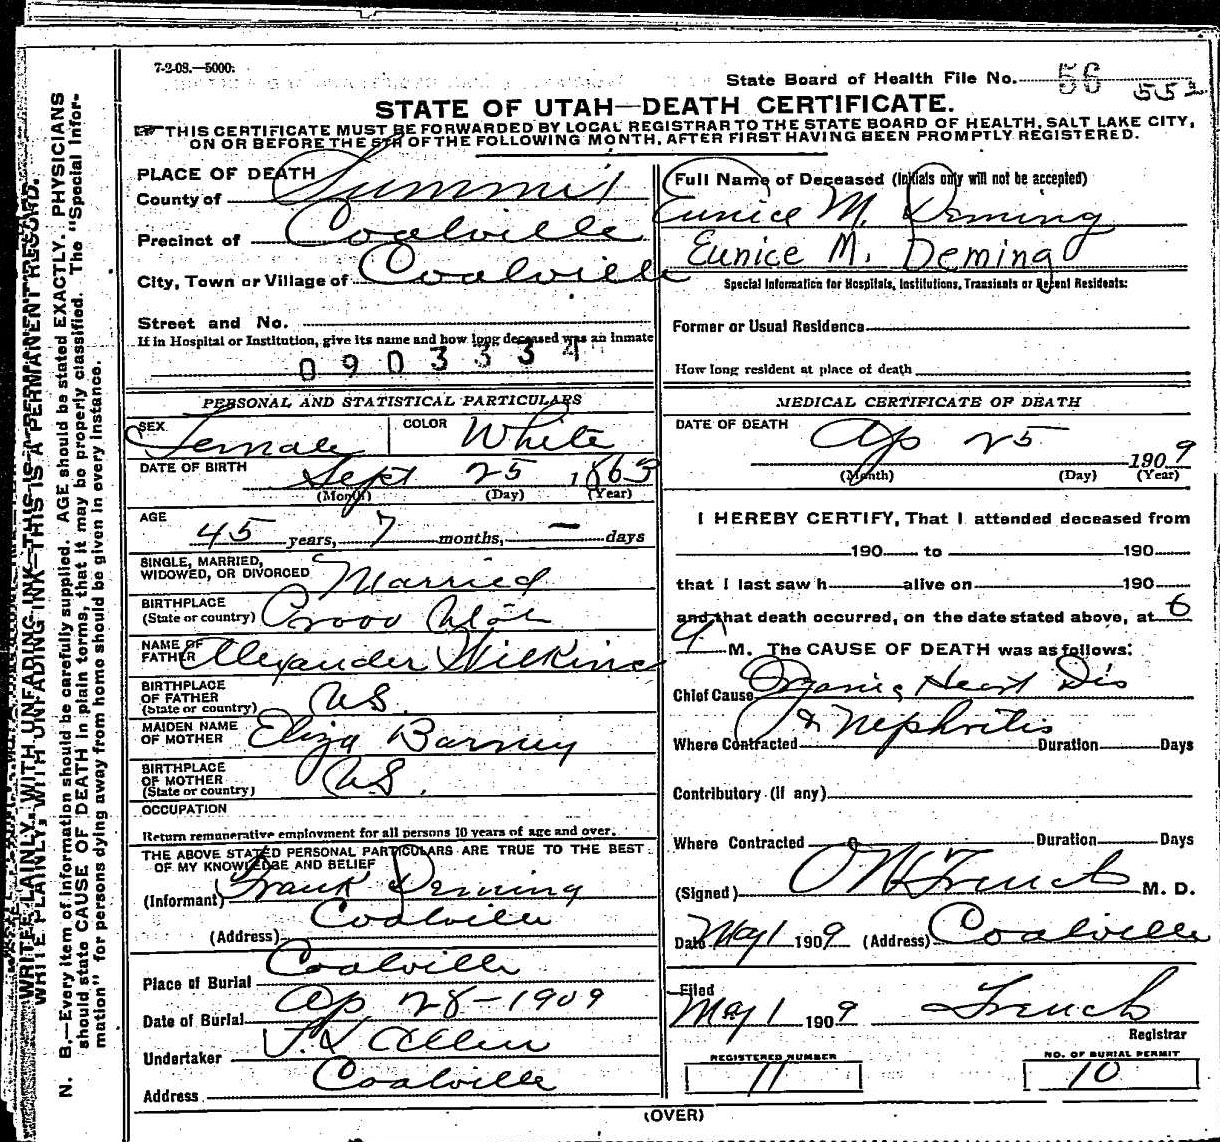 7-2-08.—5000.
State Board of Health File No. 56 553
STATE OF UTAH—DEATH CERTIFICATE.
THIS CERTIFICATE MUST BE FORWARDED BY LOCAL REGISTRAR TO THE STATE BOARD OF HEALTH, SALT LAKE CITY,
ON OR BEFORE THE 5TH OF THE FOLLOWING MONTH, AFTER FIRST HAVING BEEN PROMPTLY REGISTERED.
PLACE OF DEATH
County of Summit
Precinct of Coalville
City, Town or Village of Coalville
Street and No.
If in Hospital or Institution, give its name and how long deceased was an inmate
0903334
Full Name of Deceased (Initials only will not be accepted)
Eunice M. Deming
Eunice M. Deming
Special Information for Hospitals, Institutions, Transients or Recent Residents:
Former or Usual Residence
How long resident at place of death
PERSONAL AND STATISTICAL PARTICULARS
SEX Female COLOR White
DATE OF BIRTH Sept 25 1863
(Month) (Day) (Year)
AGE
45 years, 7 months, — days
SINGLE, MARRIED,
WIDOWED, OR DIVORCED Married
BIRTHPLACE
(State or country) Provo Utah
NAME OF
FATHER Alexander Wilkins
BIRTHPLACE
OF FATHER
(State or country) US.
MAIDEN NAME
OF MOTHER Eliza Barney
BIRTHPLACE
OF MOTHER
(State or country) US.
OCCUPATION
Return remunerative employment for all persons 10 years of age and over.
THE ABOVE STATED PERSONAL PARTICULARS ARE TRUE TO THE BEST
OF MY KNOWLEDGE AND BELIEF
(Informant) Frank Deming
(Address) Coalville
Place of Burial Coalville
Date of Burial Ap 28-1909
Undertaker Allen
Address Coalville
MEDICAL CERTIFICATE OF DEATH
DATE OF DEATH Ap 25 1909
(Month) (Day) (Year)
I HEREBY CERTIFY, That I attended deceased from
190 to 190
that I last saw h alive on 190
and that death occurred, on the date stated above, at 6
M. The CAUSE OF DEATH was as follows:
Chief Cause Organic Heart Dis
& Nephritis
Where Contracted Duration Days
Contributory (if any)
Where Contracted Duration Days
(Signed) French M. D.
Date May 1 1909 (Address) Coalville
Filed
May 1 1909 French
Registrar
REGISTERED NUMBER
11
NO. OF BURIAL PERMIT
10
(OVER)
WRITE PLAINLY, WITH UNFADING INK—THIS IS A PERMANENT RECORD.
N. B.—Every item of information should be carefully supplied. AGE should be stated EXACTLY. PHYSICIANS
should state CAUSE OF DEATH in plain terms, that it may be properly classified. The "Special Infor-
mation" for persons dying away from home should be given in every instance.